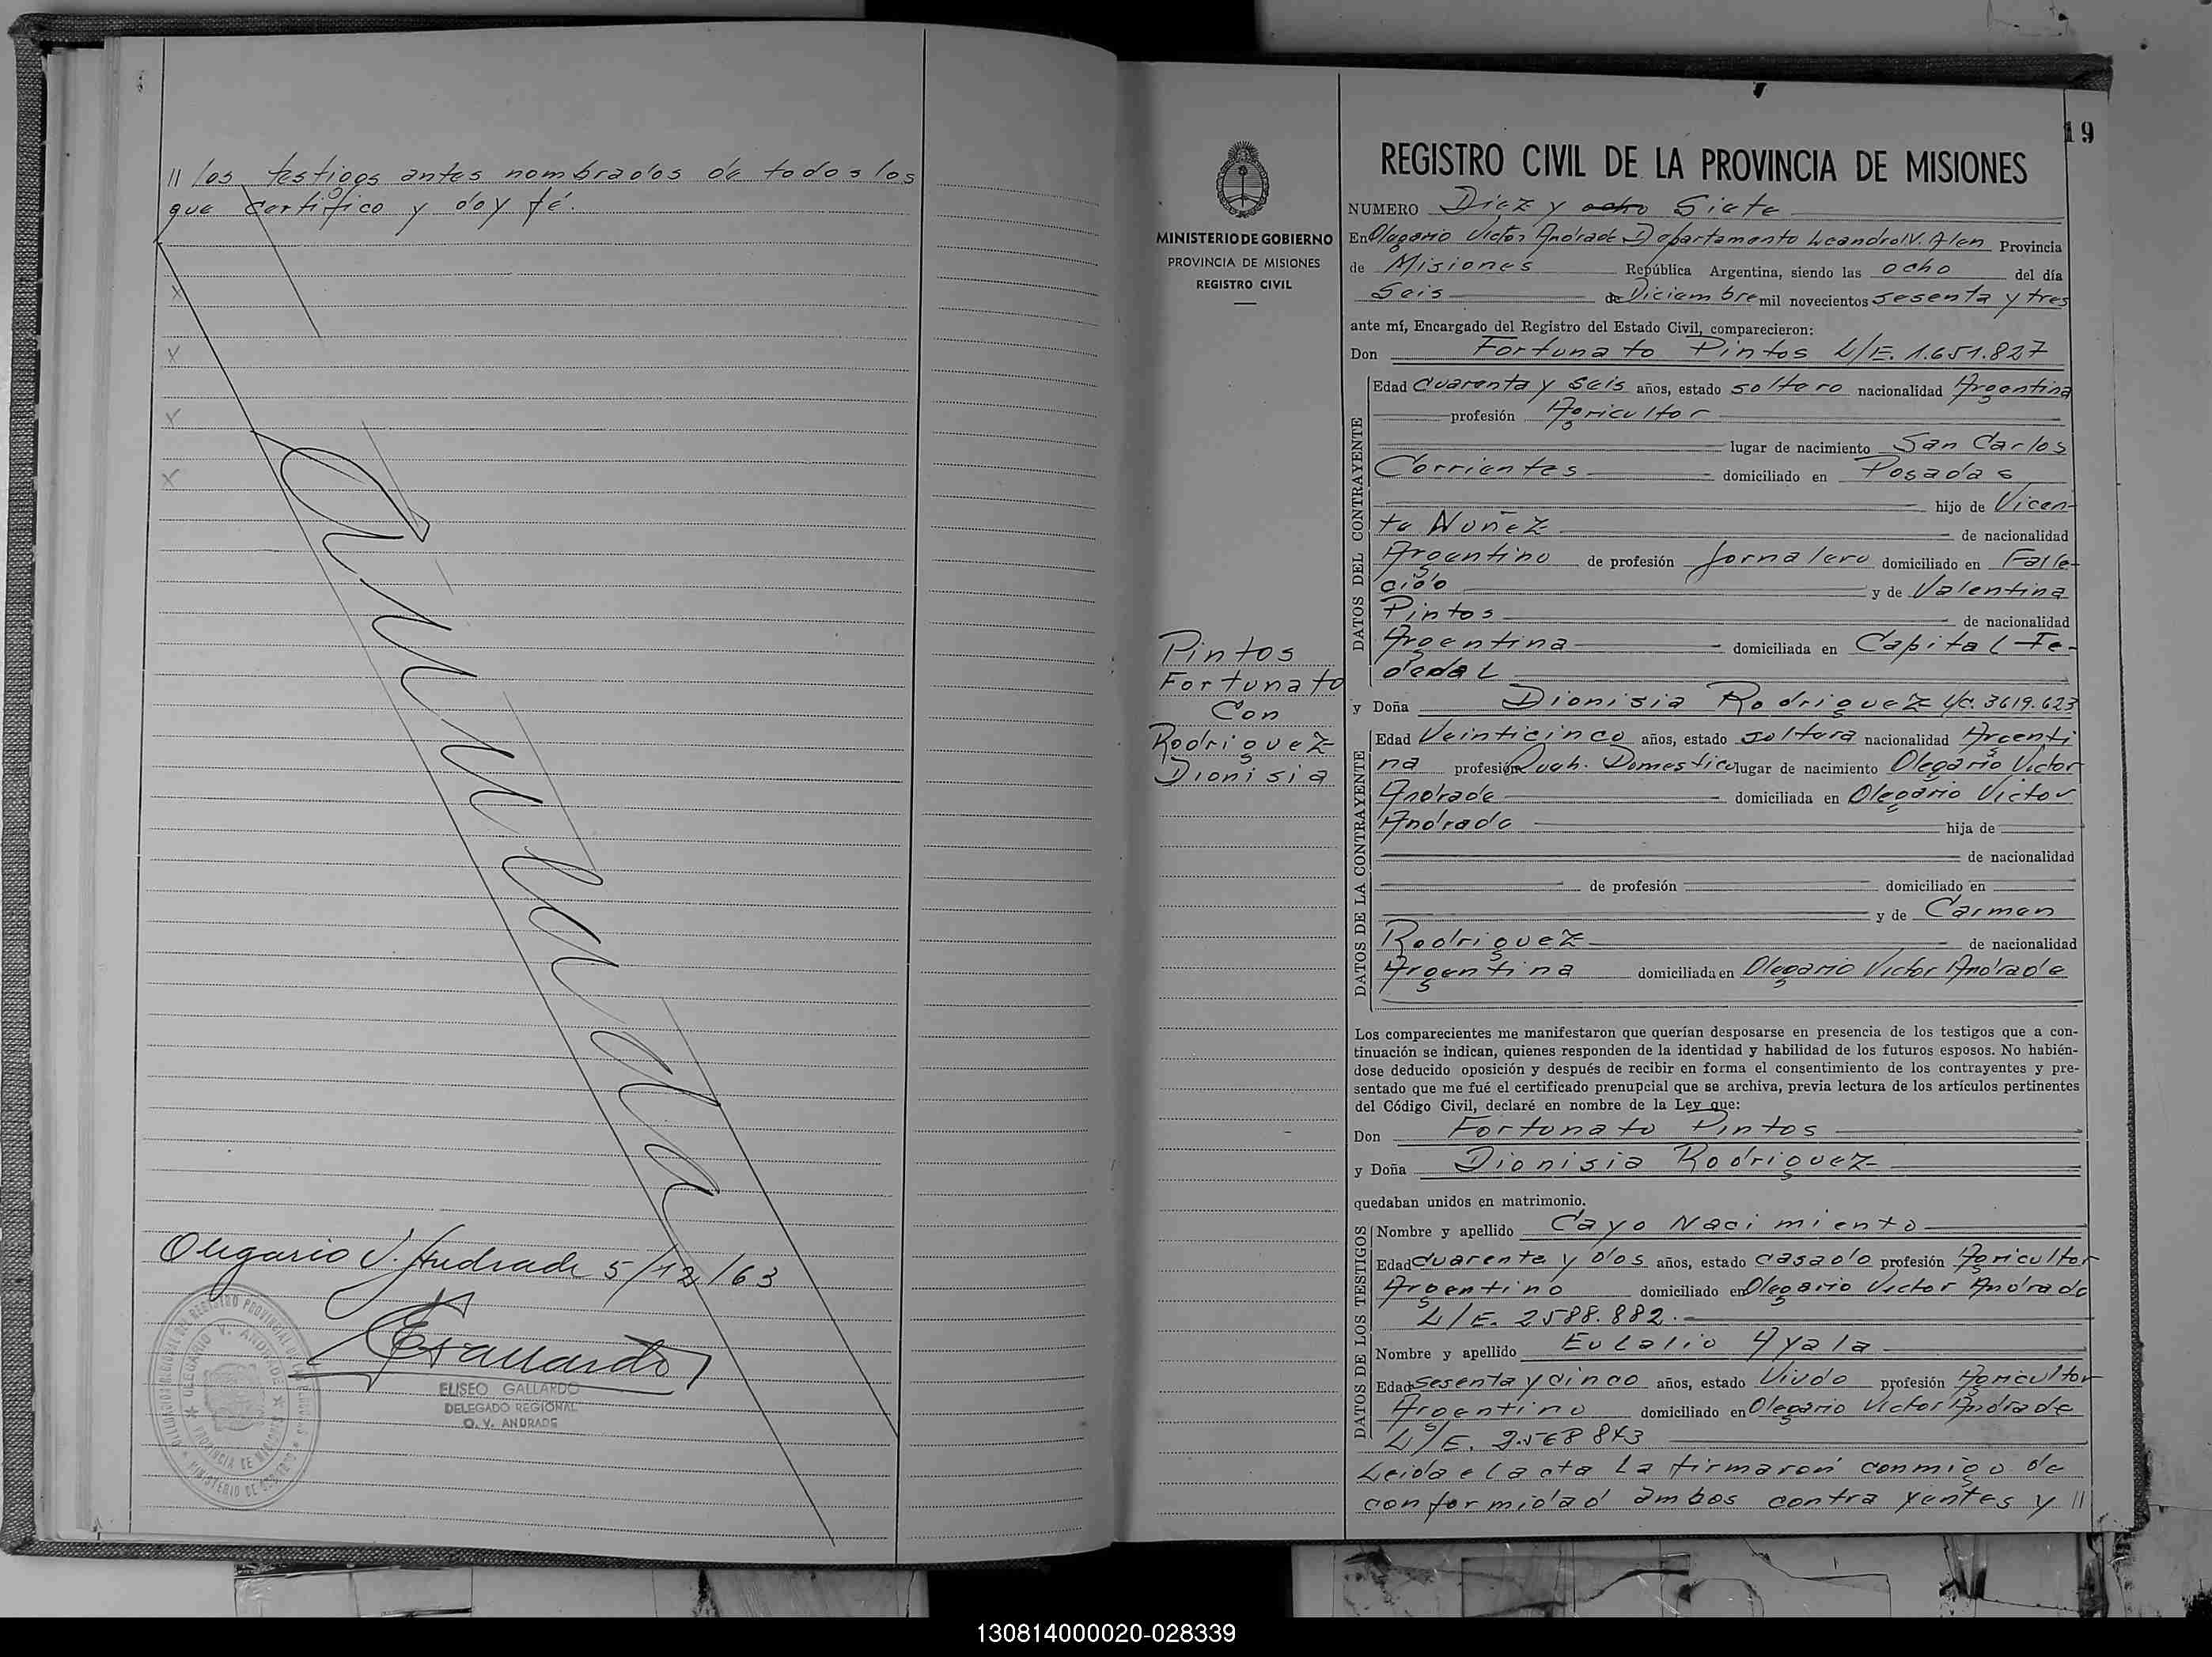 // los testigos antes nombrados de todos los
que certifico y doy fé.
x
x
x
x
Anulada
Olegario V. Andrade 5/12/63
EGallardo
ELISEO GALLARDO
DELEGADO REGIONAL
O. V. ANDRADE
19
MINISTERIO DE GOBIERNO
PROVINCIA DE MISIONES
REGISTRO CIVIL
Pintos
Fortunato
Con
Rodriguez
Dionisia
REGISTRO CIVIL DE LA PROVINCIA DE MISIONES
NUMERO Diez y ocho Siete
En Olegario Victor Andrade Departamento Leandro N. Alen Provincia
de Misiones República Argentina, siendo las ocho del día
Seis de Diciembre mil novecientos sesenta y tres
ante mí, Encargado del Registro del Estado Civil, comparecieron:
Don Fortunato Pintos L/E. 1.651.827
DATOS DEL CONTRAYENTE
Edad Cuarenta y Seis años, estado soltero nacionalidad Argentina
profesión Agricultor
lugar de nacimiento San Carlos
Corrientes domiciliado en Posadas
hijo de Vicen-
te Nuñez de nacionalidad
Argentino de profesión Jornalero domiciliado en Falle-
cido y de Valentina
Pintos de nacionalidad
Argentina domiciliada en Capital Fe-
deral
y Doña Dionisia Rodriguez L/C. 3619.623
DATOS DE LA CONTRAYENTE
Edad Veinticinco años, estado soltera nacionalidad Argenti
na profesión Queh. Domestico lugar de nacimiento Olegario Victor
Andrade domiciliada en Olegario Victor
Andrade hija de
de nacionalidad
de profesión domiciliado en
y de Carmen
Rodriguez de nacionalidad
Argentina domiciliada en Olegario Victor Andrade
Los comparecientes me manifestaron que querían desposarse en presencia de los testigos que a con-
tinuación se indican, quienes responden de la identidad y habilidad de los futuros esposos. No habién-
dose deducido oposición y después de recibir en forma el consentimiento de los contrayentes y pre-
sentado que me fué el certificado prenupcial que se archiva, previa lectura de los artículos pertinentes
del Código Civil, declaré en nombre de la Ley que:
Don Fortunato Pintos
y Doña Dionisia Rodriguez
quedaban unidos en matrimonio.
DATOS DE LOS TESTIGOS
Nombre y apellido Cayo Nacimiento
Edad cuarenta y dos años, estado casado profesión Agricultor
Argentino domiciliado en Olegario Victor Andrade
L/E. 2588.882.-
Nombre y apellido Eulalio Ayala
Edad Sesenta y cinco años, estado Viudo profesión Agricultor
Argentino domiciliado en Olegario Victor Andrade
L/E. 2.568 843
Leida el acta la firmaron conmigo de
conformidad ambos contrayentes y //
130814000020-028339